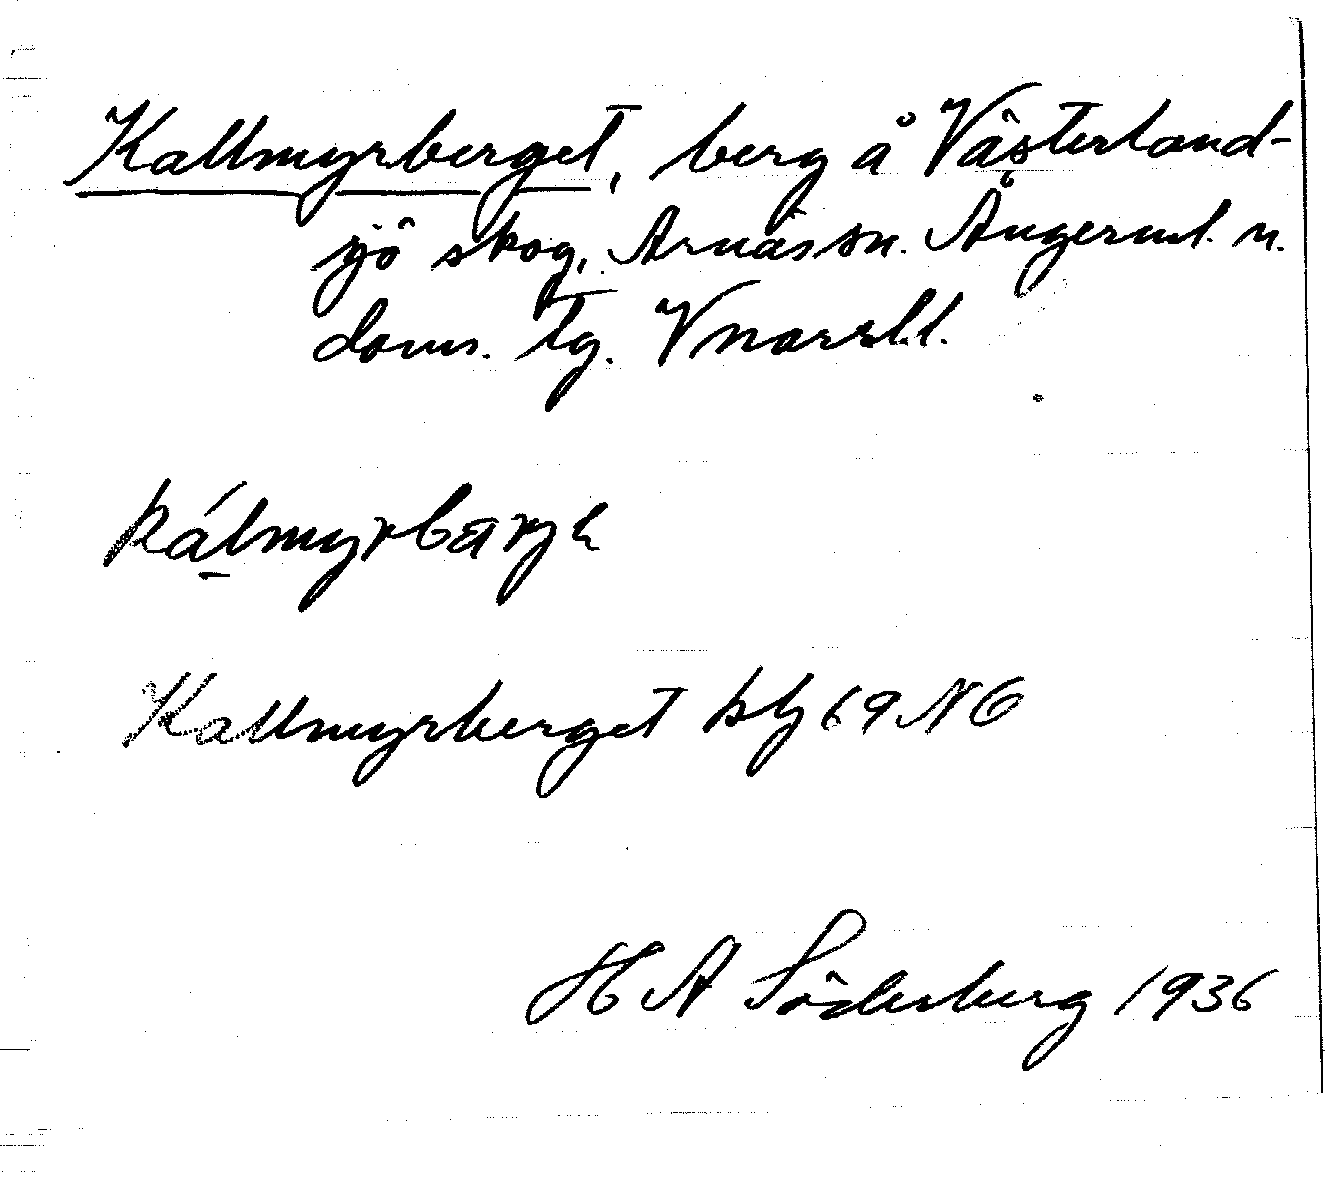 Kallmyrberget, berg å Västerland-
sjö skog, Arnäs sn. Ångerml. n.
doms. tg. Vnorrl.l.
kálmyrbærjə
Kallmyrberget kbl 69 NO
H A Söderberg 1936